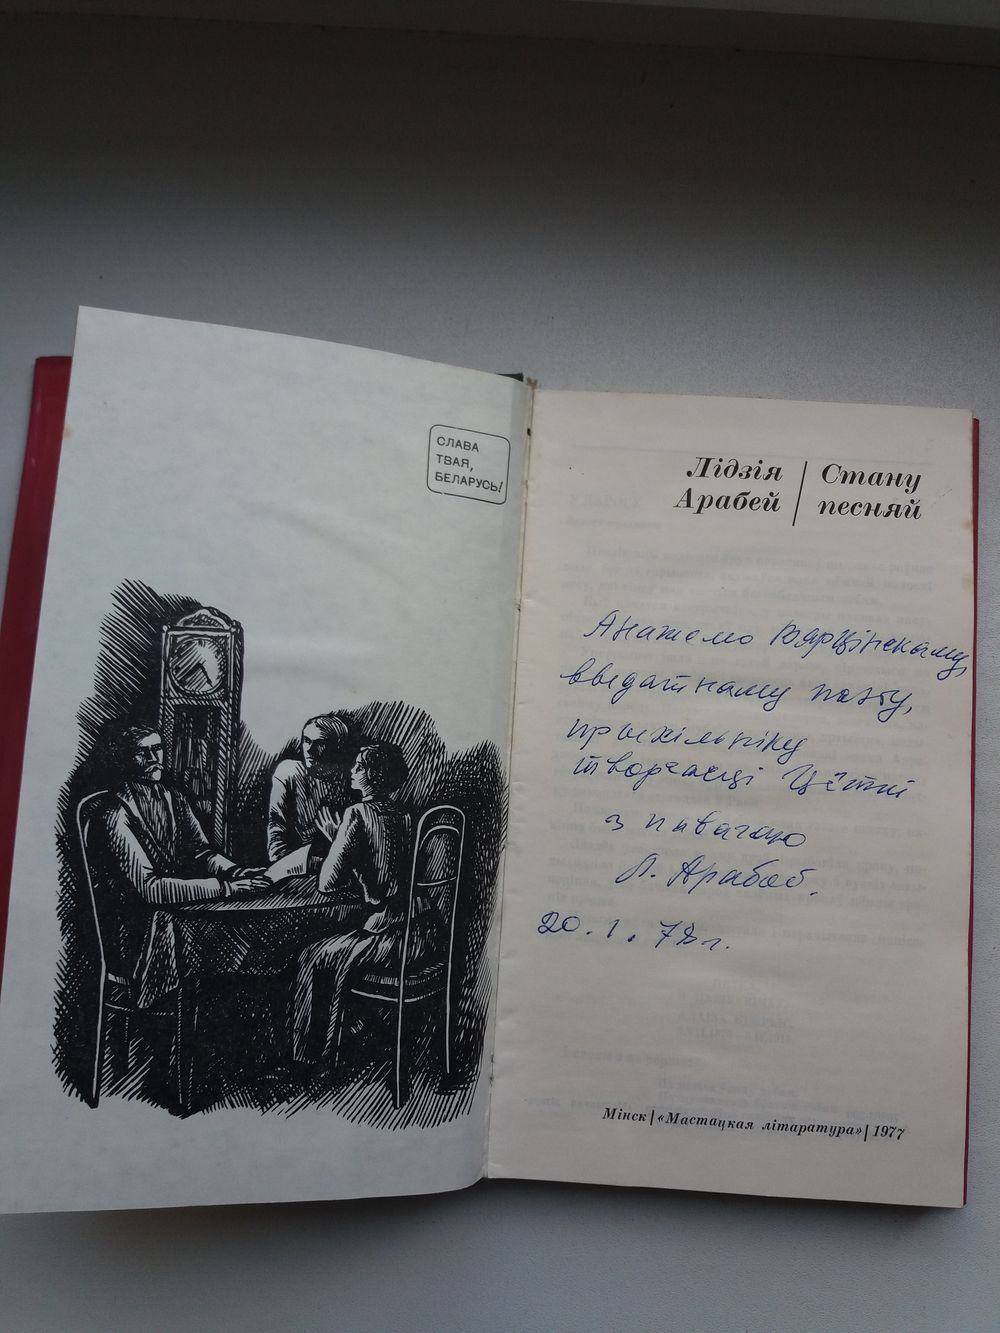 СЛАВА
ТВАЯ,
БЕЛАРУСЬ!
Лідзія
Арабей
Стану
песняй
Анатолю Вярцінскаму,
выдатнаму паэту,
прыхільніку
творчасці Цёткі
з павагаю
Л. Арабей.
20.1.78 г.
Мінск | «Мастацкая літаратура» | 1977